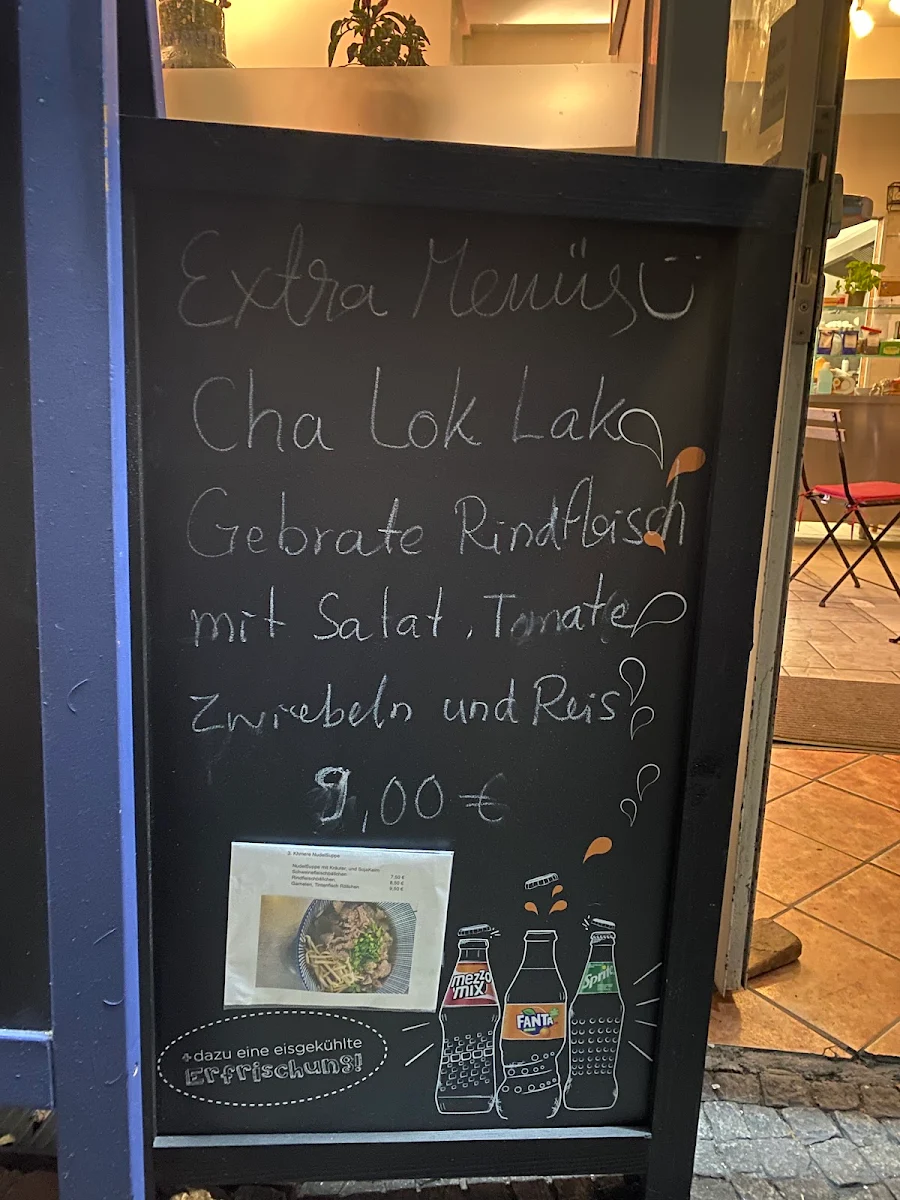 Extra Menüs
Cha Lok Lak
Gebrate Rindfleisch
mit Salat, Tomate
Zwiebeln und Reis
9,00 €
2. Khmere Nudelsuppe
Nudelsuppe mit Kräuter, und Sojakeim
Schweinefleischbällchen 7,50 €
Rindfleischbällchen 8,50 €
Garnelen, Tintenfisch Bällchen 9,50 €
mezzo
mix
FANTA
Sprite
+dazu eine eisgekühlte
Erfrischung!